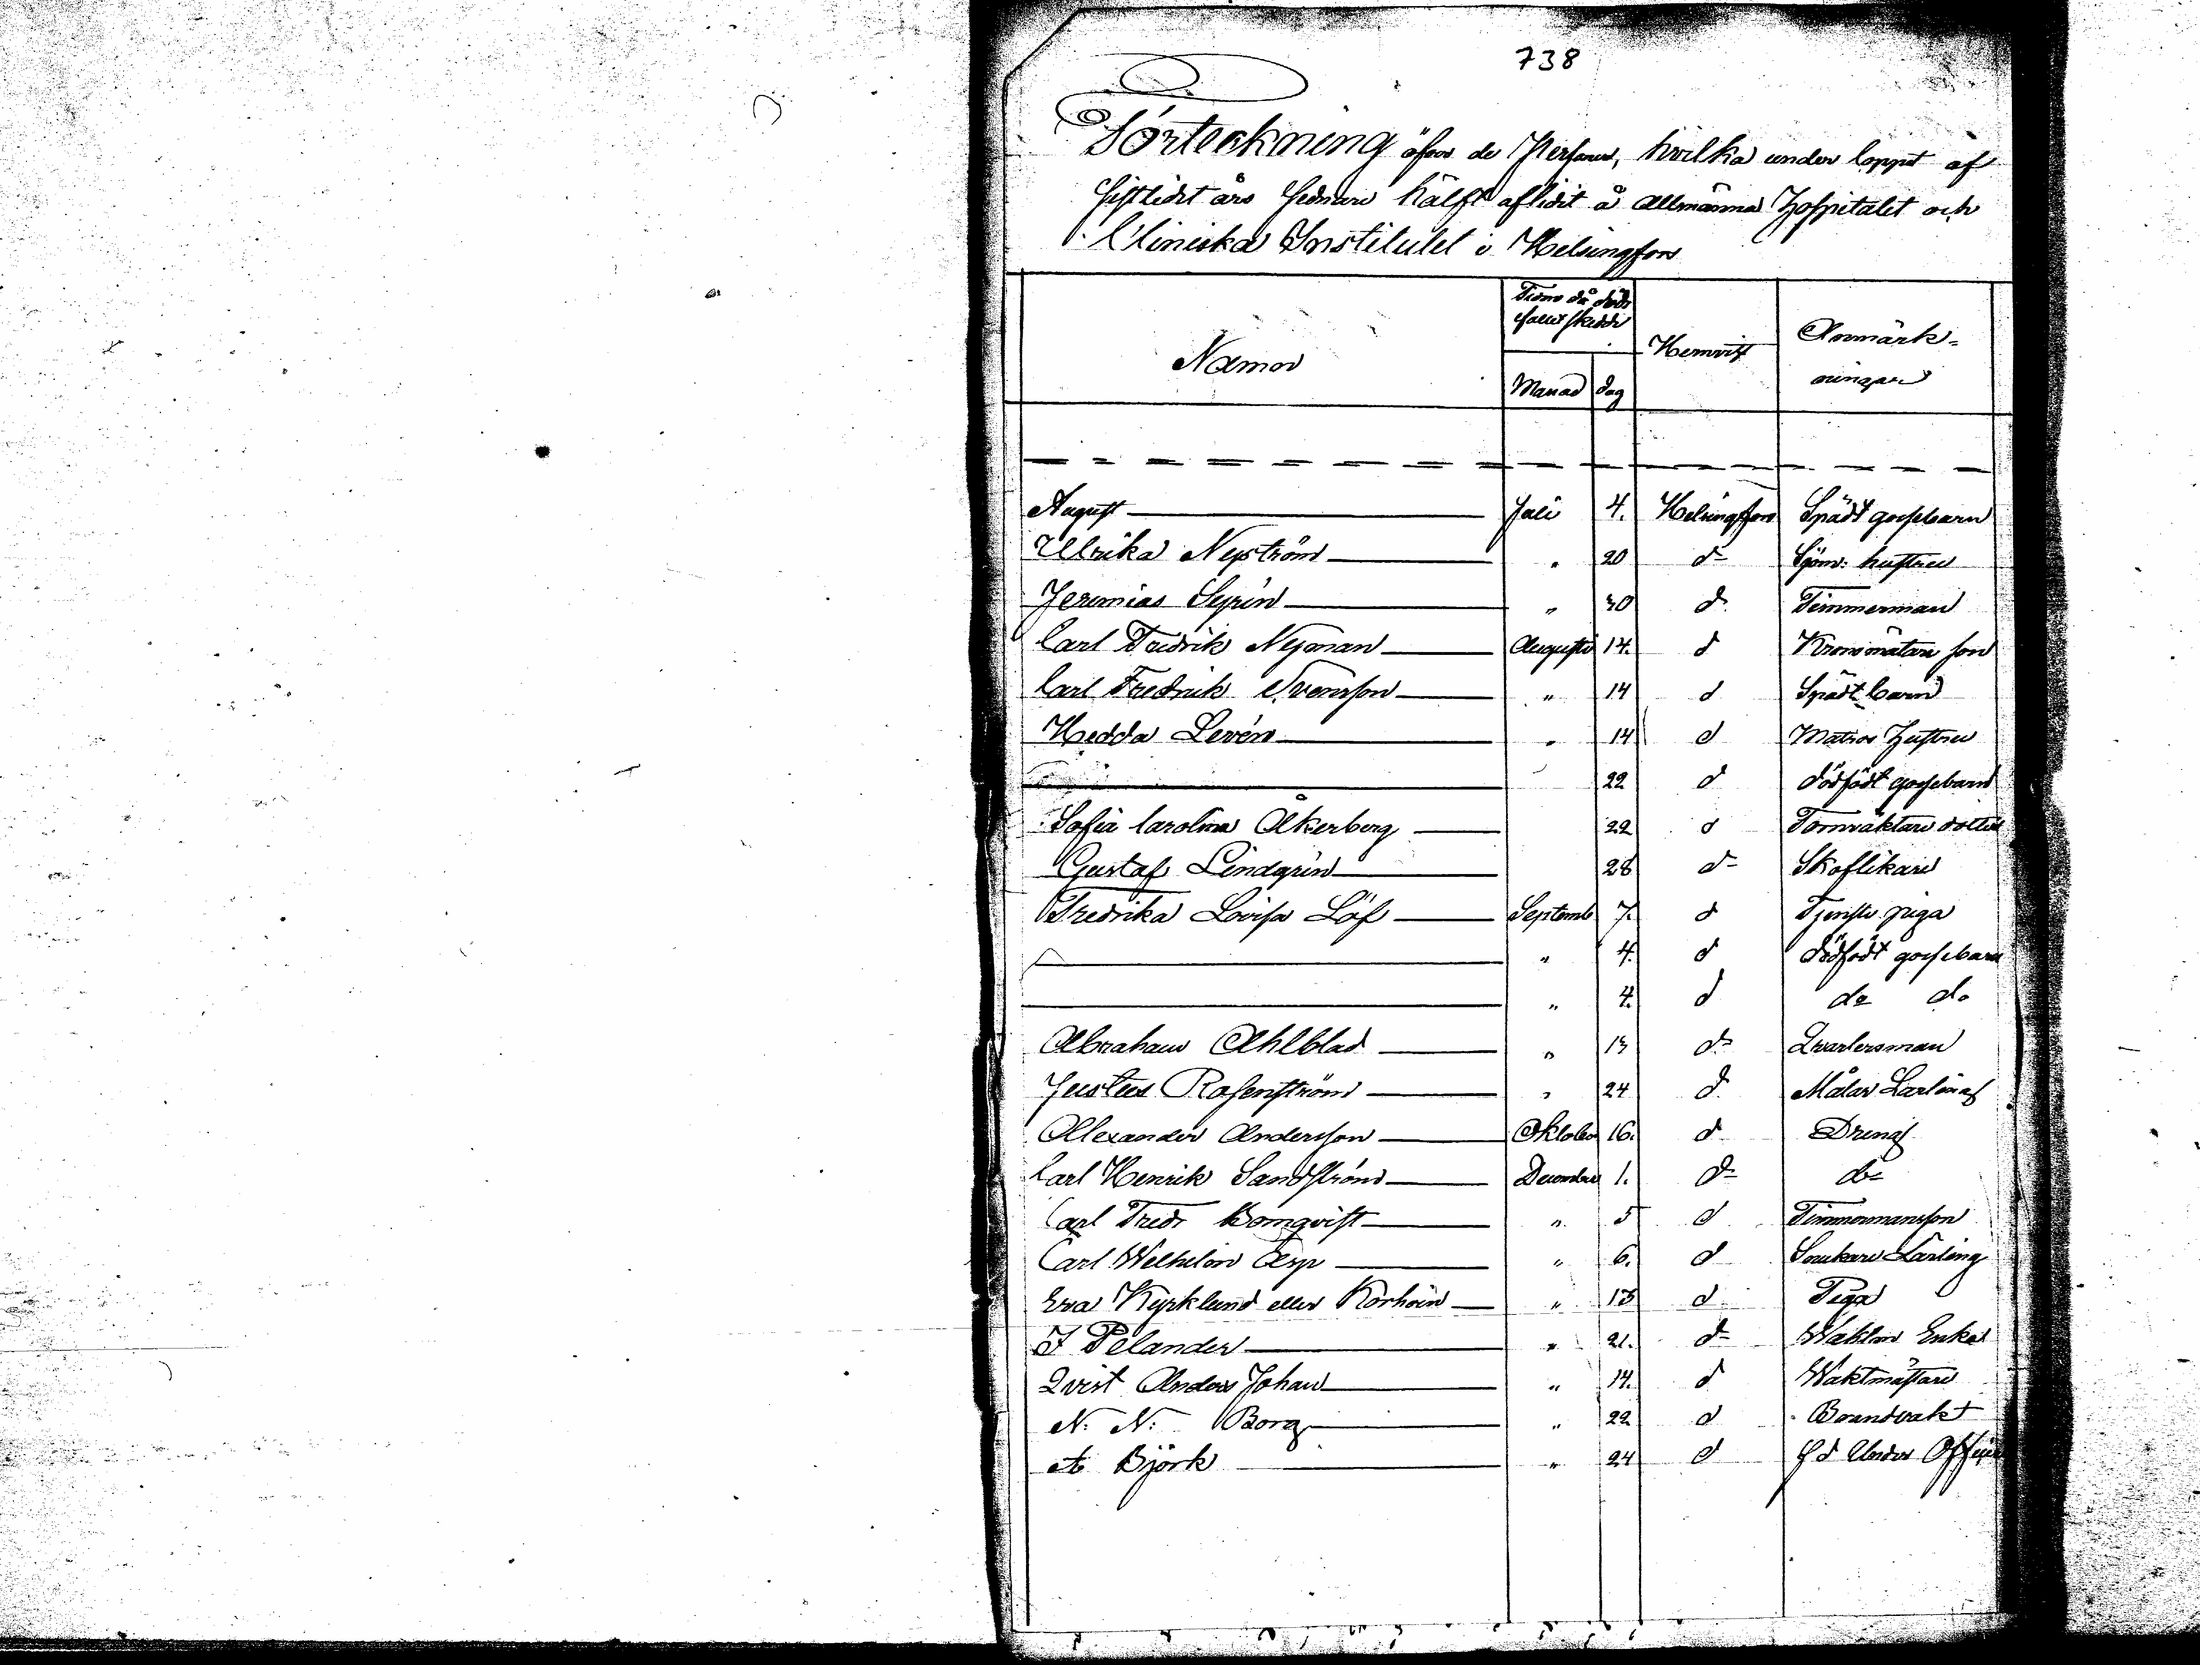 738
Förteckning öfver de Personer, hvilka under loppet af
sistlidet års sednare hälft aflidit å Allmänna Hospitalet och
Cliniska Institutet i Helsingfors
Namn
Tiden då döds
fallet skedde
Månad dag
Hemvist
Anmärk-
ningar
August Juli 4. Helsingfors Spädt gossebarn
Ulrika Nyström " 20 d Sjöm: hustru
Jeremias Syrén " 30 d Timmerman
Carl Fredrik Nyman Augusti 14. d son
Carl Fredrik Svensson " 14 d Spädt barn
Hedda Levén " 14 d Matros Hustru
22 d dödfödt gossebarn
Sofia Carolina Åkerberg 22 d Tornväktare dotter
Gustaf Lindgrén 28 d Skoflikare
Fredrika Lovisa Löf Septemb 7. d Tjenste piga
" 4. d dödfödt gossebarn
" 4. d do do
Abraham Ahlblad " d Qvartersman
Justus Rosenström " 24 d Målar Lärling
Alexander Andersson Oktober 16. d Dreng
Carl Henrik Sandström December 1. d do
Carl Fredr Blomqvist " 5 d Timmermansson
Carl Wilhelm Asp " 6. d Lärling
Eva Kyrklund eller Korhoin " 13 d Piga
J Pelander " 21. d Enka
Qvist Anders Johan " 14. d Waktmästare
N. N. Borg " 22 d Brandvakt
A Björk " 24 d f d Under Officer